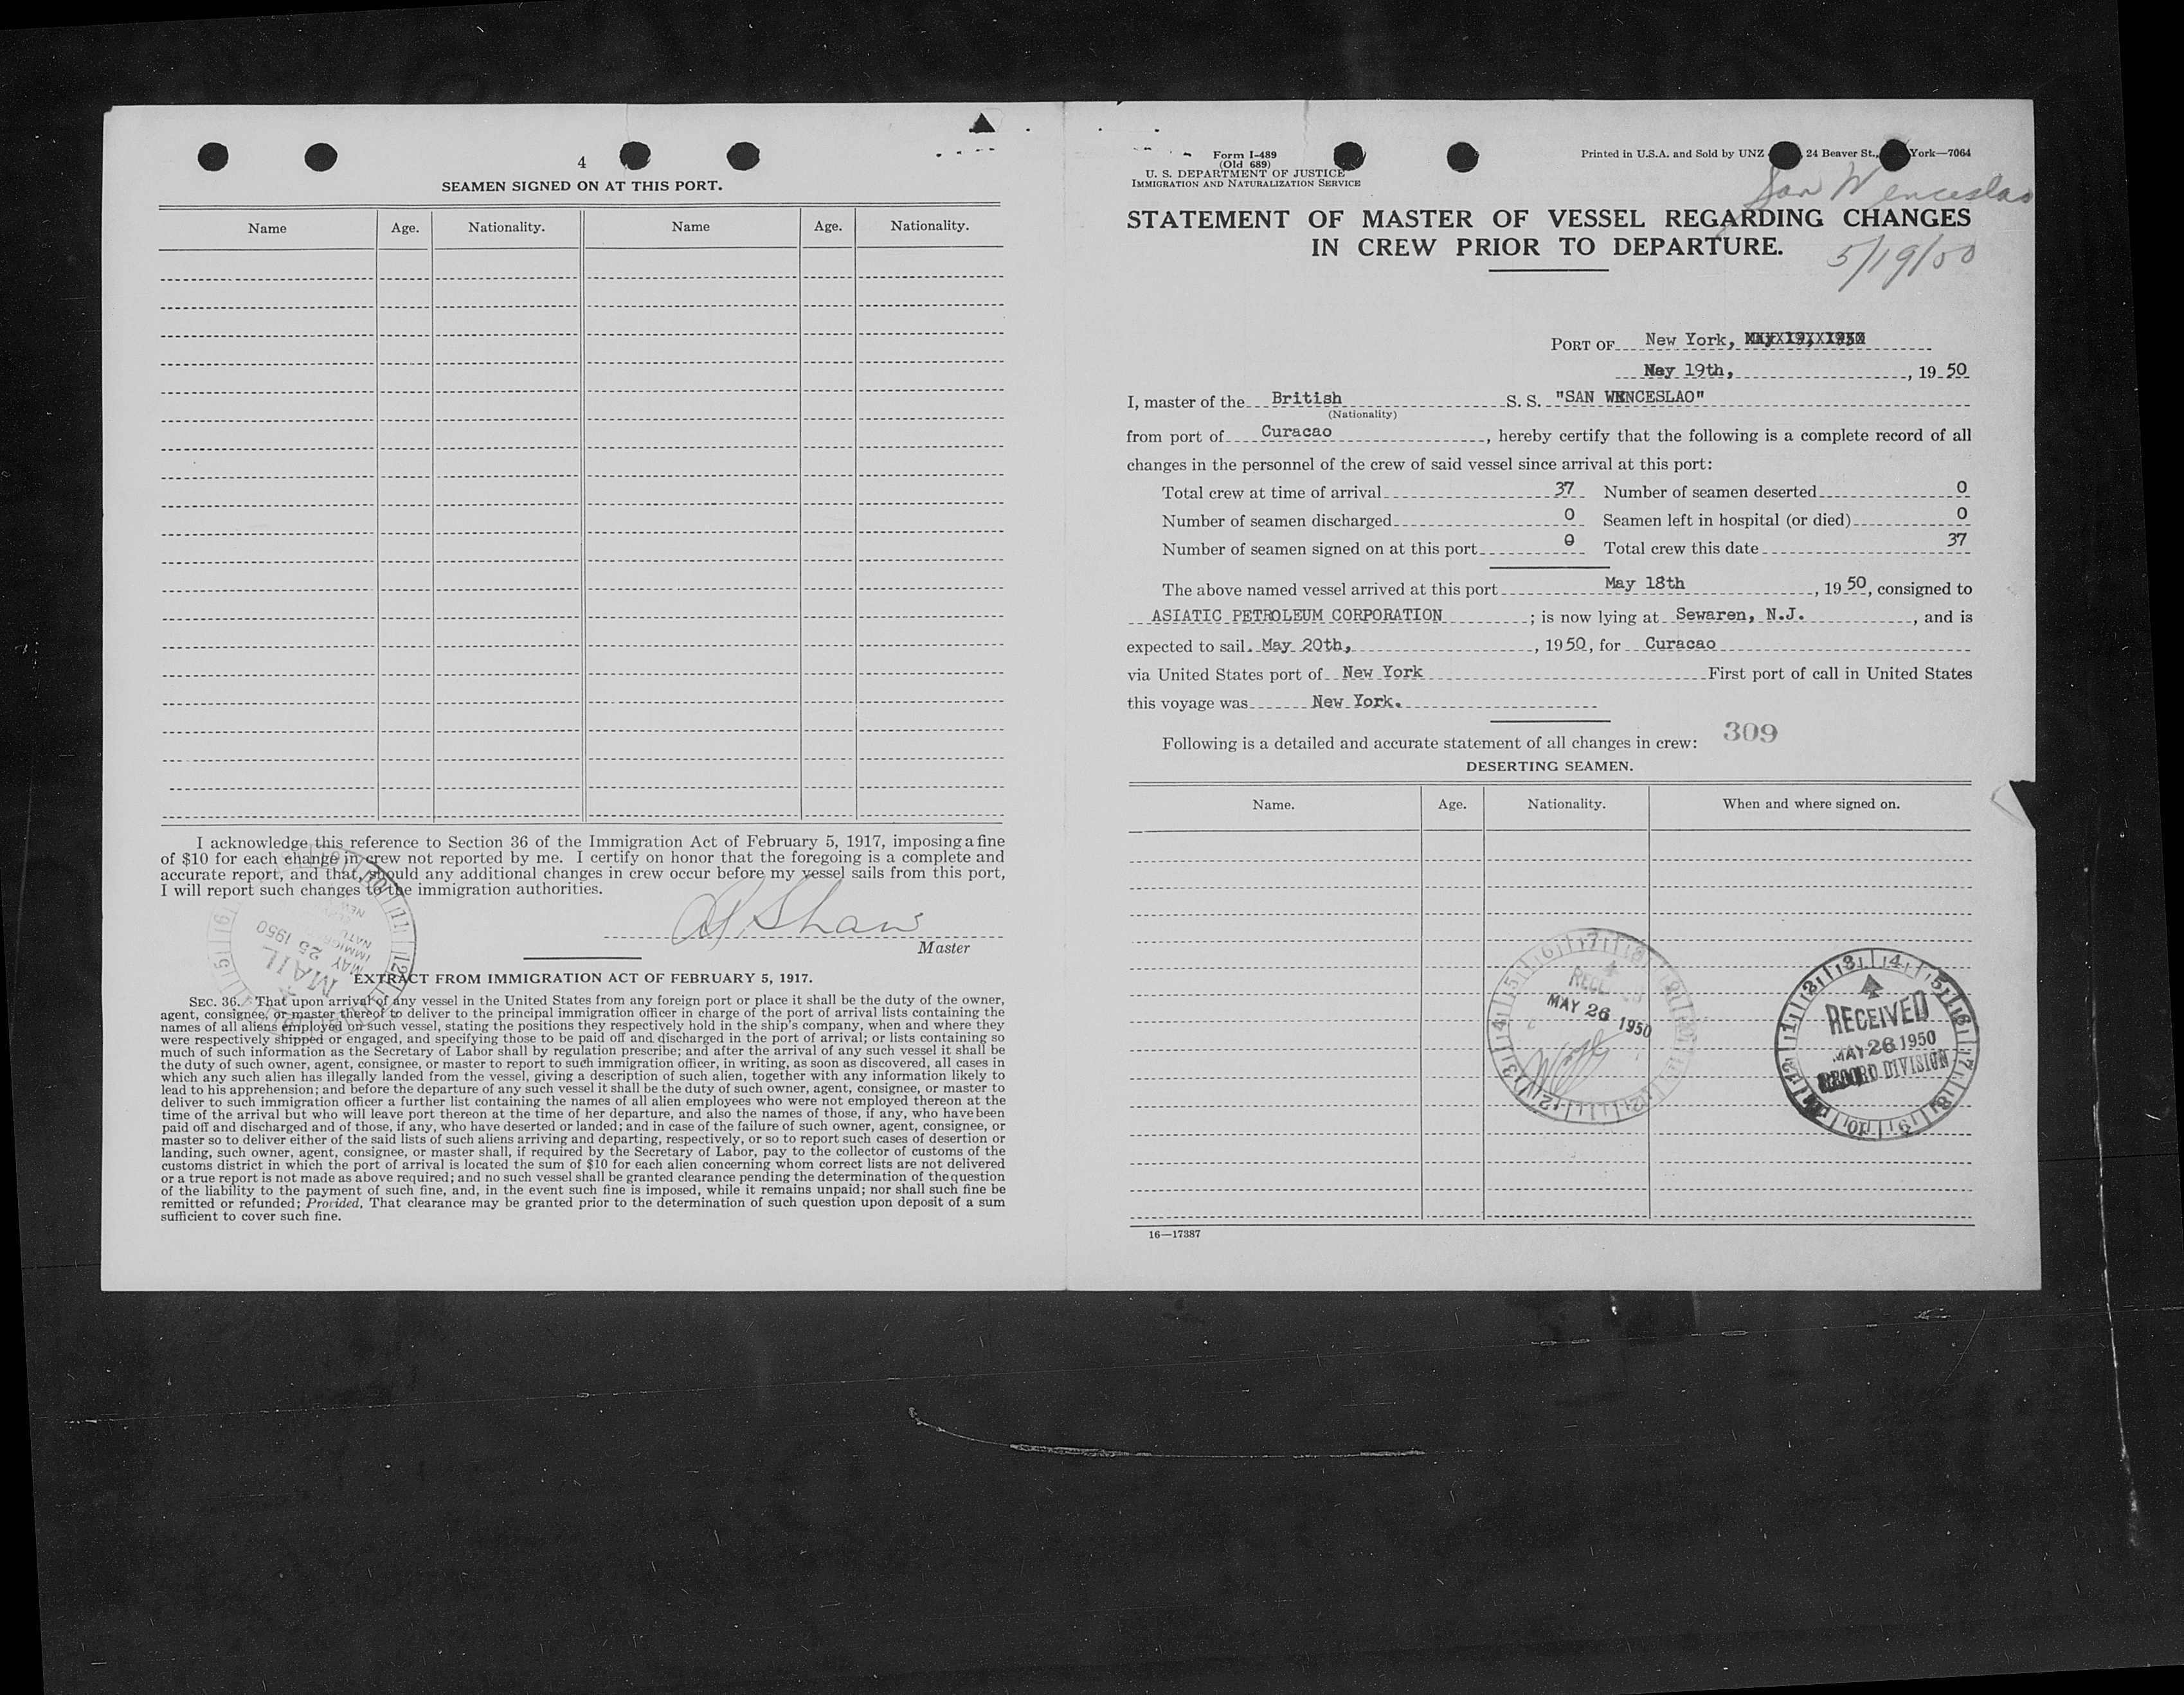 4
SEAMEN SIGNED ON AT THIS PORT.
Name Age. Nationality. Name Age. Nationality.
I acknowledge this reference to Section 36 of the Immigration Act of February 5, 1917, imposing a fine
of $10 for each change in crew not reported by me. I certify on honor that the foregoing is a complete and
accurate report, and that, should any additional changes in crew occur before my vessel sails from this port,
I will report such changes to the immigration authorities.
Shaw
Master
MAIL
MAY 25 1950
EXTRACT FROM IMMIGRATION ACT OF FEBRUARY 5, 1917.
SEC. 36. That upon arrival of any vessel in the United States from any foreign port or place it shall be the duty of the owner,
agent, consignee, or master thereof to deliver to the principal immigration officer in charge of the port of arrival lists containing the
names of all aliens employed on such vessel, stating the positions they respectively hold in the ship's company, when and where they
were respectively shipped or engaged, and specifying those to be paid off and discharged in the port of arrival; or lists containing so
much of such information as the Secretary of Labor shall by regulation prescribe; and after the arrival of any such vessel it shall be
the duty of such owner, agent, consignee, or master to report to such immigration officer, in writing, as soon as discovered, all cases in
which any such alien has illegally landed from the vessel, giving a description of such alien, together with any information likely to
lead to his apprehension; and before the departure of any such vessel it shall be the duty of such owner, agent, consignee, or master to
deliver to such immigration officer a further list containing the names of all alien employees who were not employed thereon at the
time of the arrival but who will leave port thereon at the time of her departure, and also the names of those, if any, who have been
paid off and discharged and of those, if any, who have deserted or landed; and in case of the failure of such owner, agent, consignee, or
master so to deliver either of the said lists of such aliens arriving and departing, respectively, or so to report such cases of desertion or
landing, such owner, agent, consignee, or master shall, if required by the Secretary of Labor, pay to the collector of customs of the
customs district in which the port of arrival is located the sum of $10 for each alien concerning whom correct lists are not delivered
or a true report is not made as above required; and no such vessel shall be granted clearance pending the determination of the question
of the liability to the payment of such fine, and, in the event such fine is imposed, while it remains unpaid; nor shall such fine be
remitted or refunded; Provided, That clearance may be granted prior to the determination of such question upon deposit of a sum
sufficient to cover such fine.
Form I-489
(Old 689)
U. S. DEPARTMENT OF JUSTICE
IMMIGRATION AND NATURALIZATION SERVICE
Printed in U.S.A. and Sold by UNZ 24 Beaver St., York—7064
San Wenceslao
STATEMENT OF MASTER OF VESSEL REGARDING CHANGES
IN CREW PRIOR TO DEPARTURE.
5/19/50
PORT OF New York,
May 19th, , 19 50
I, master of the British S. S. "SAN WENCESLAO"
(Nationality)
from port of Curacao , hereby certify that the following is a complete record of all
changes in the personnel of the crew of said vessel since arrival at this port:
Total crew at time of arrival 37 Number of seamen deserted 0
Number of seamen discharged 0 Seamen left in hospital (or died) 0
Number of seamen signed on at this port 0 Total crew this date 37
The above named vessel arrived at this port May 18th , 19 50, consigned to
ASIATIC PETROLEUM CORPORATION ; is now lying at Sewaren, N.J. , and is
expected to sail. May 20th, , 1950, for Curacao
via United States port of New York First port of call in United States
this voyage was New York.
Following is a detailed and accurate statement of all changes in crew: 309
DESERTING SEAMEN.
Name. Age. Nationality. When and where signed on.
MAY 26 1950
RECEIVED
MAY 26 1950
RECORD DIVISION
16—17387